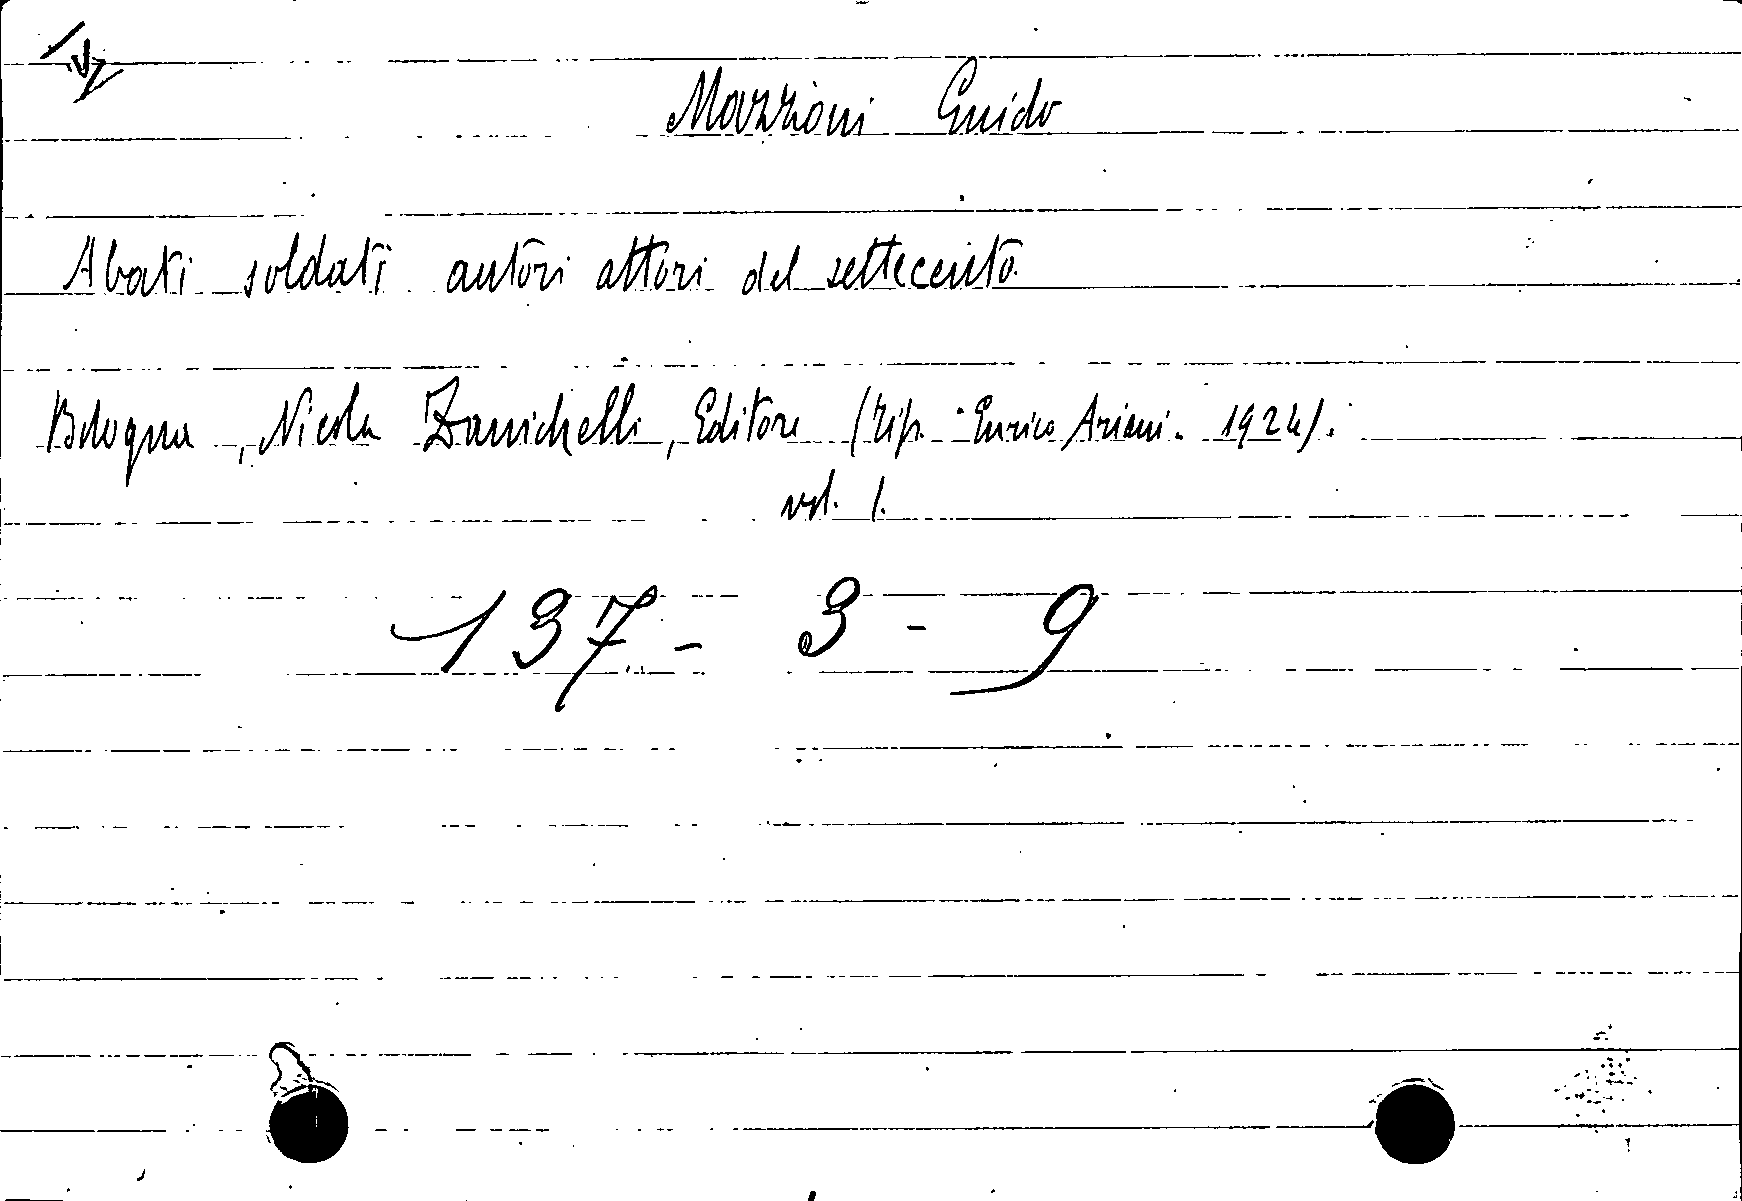 Mazzoni Guido
Abati soldati autori attori del settecento.
Bologna, Nicola Zanichelli, Editore (tip. Enrico Ariani. 1924).
vol. 1.
137 - 3 - 9